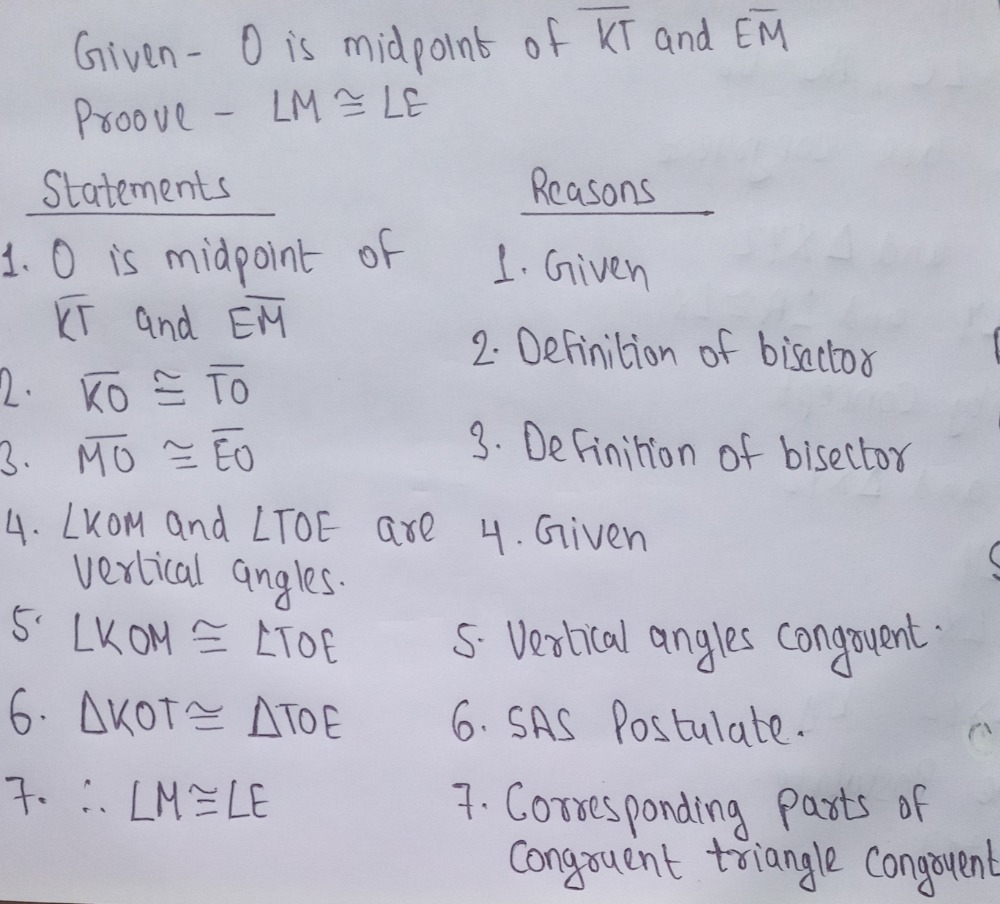 Given - O is midpoint of K̅T̅ and E̅M̅
Proove - ∠M ≅ ∠E
Statements Reasons
1. O is midpoint of 1. Given
K̅T̅ and E̅M̅
2. Definition of bisector
2. K̅O̅ ≅ T̅O̅
3. M̅O̅ ≅ E̅O̅ 3. Definition of bisector
4. ∠KOM and ∠TOE are 4. Given
vertical angles.
5. ∠KOM ≅ ∠TOE 5. Vertical angles congruent.
6. ΔKOT ≅ ΔTOE 6. SAS Postulate.
7. ∴ ∠M ≅ ∠E 7. Corresponding parts of
congruent triangle congruent